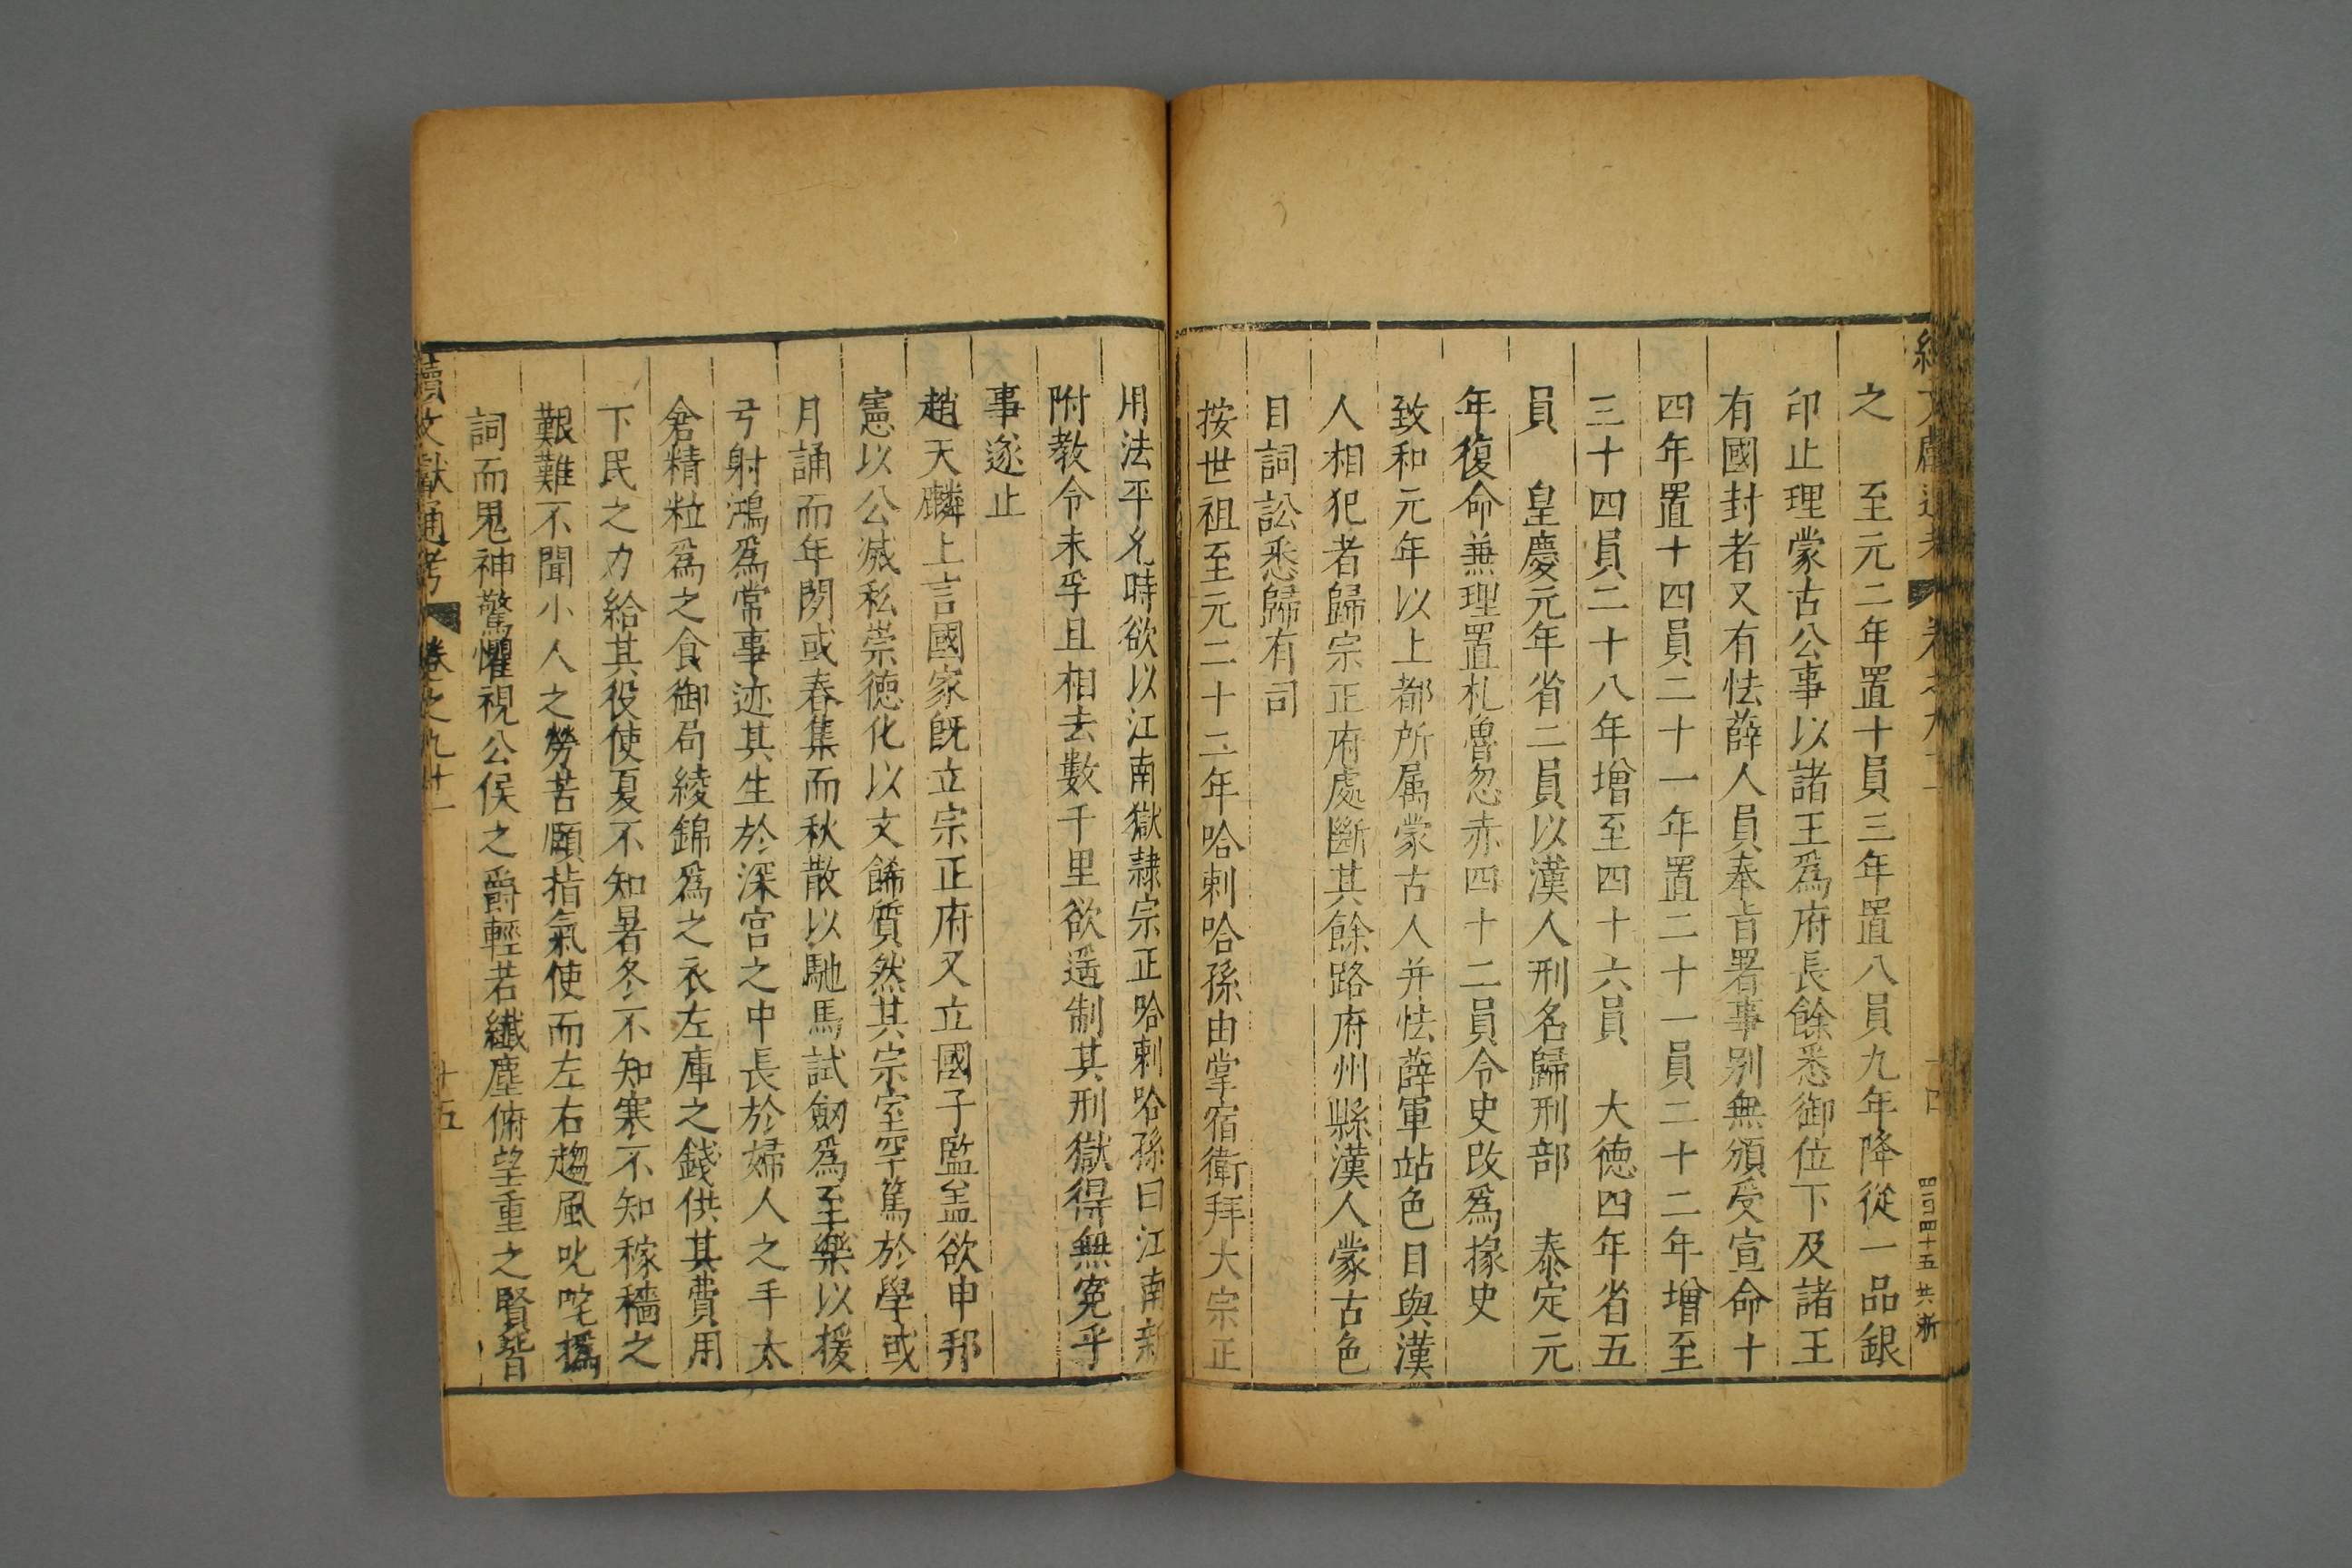 之　至元二年置十員三年置八員九年降從一品銀
印止理蒙古公事以諸王爲府長餘悉御位下及諸王
有國封者又有怯薛人員奉旨署事别無頒受宣命十
四年置十四員二十一年置二十一員二十二年增至
三十四員二十八年增至四十六員　大徳四年省五
員　皇慶元年省二員以漢人刑名歸刑部　泰定元
年復命兼理置札魯忽赤四十二員令史改爲掾史
致和元年以上都所属蒙古人并怯薛軍站色目與漢
人相犯者歸宗正府處斷其餘路府州縣漢人蒙古色
目詞訟悉歸有司
按世祖至元二十二年哈剌哈孫由掌宿衛拜大宗正
用法平允時欲以江南獄隷宗正哈剌哈孫曰江南新
附教令未孚且相去數千里欲遥制其刑獄得無寃乎
事遂止
趙天麟上言國家旣立宗正府又立國子監盖欲申邦
憲以公滅私崇徳化以文餙質然其宗室罕篤於學或
月誦而年閱或春集而秋散以馳馬試劒爲至樂以援
弓射鴻爲常事迹其生於深宫之中長於婦人之手太
倉精粒爲之食御局綾錦爲之衣左庫之錢供其費用
下民之力給其役使夏不知暑冬不知寒不知稼穡之
艱難不聞小人之勞苦頤指氣使而左右趨風叱咤撝
詞而鬼神驚懼視公侯之爵輕若纎塵俯望重之賢
續文獻通考　卷之九十一　十五